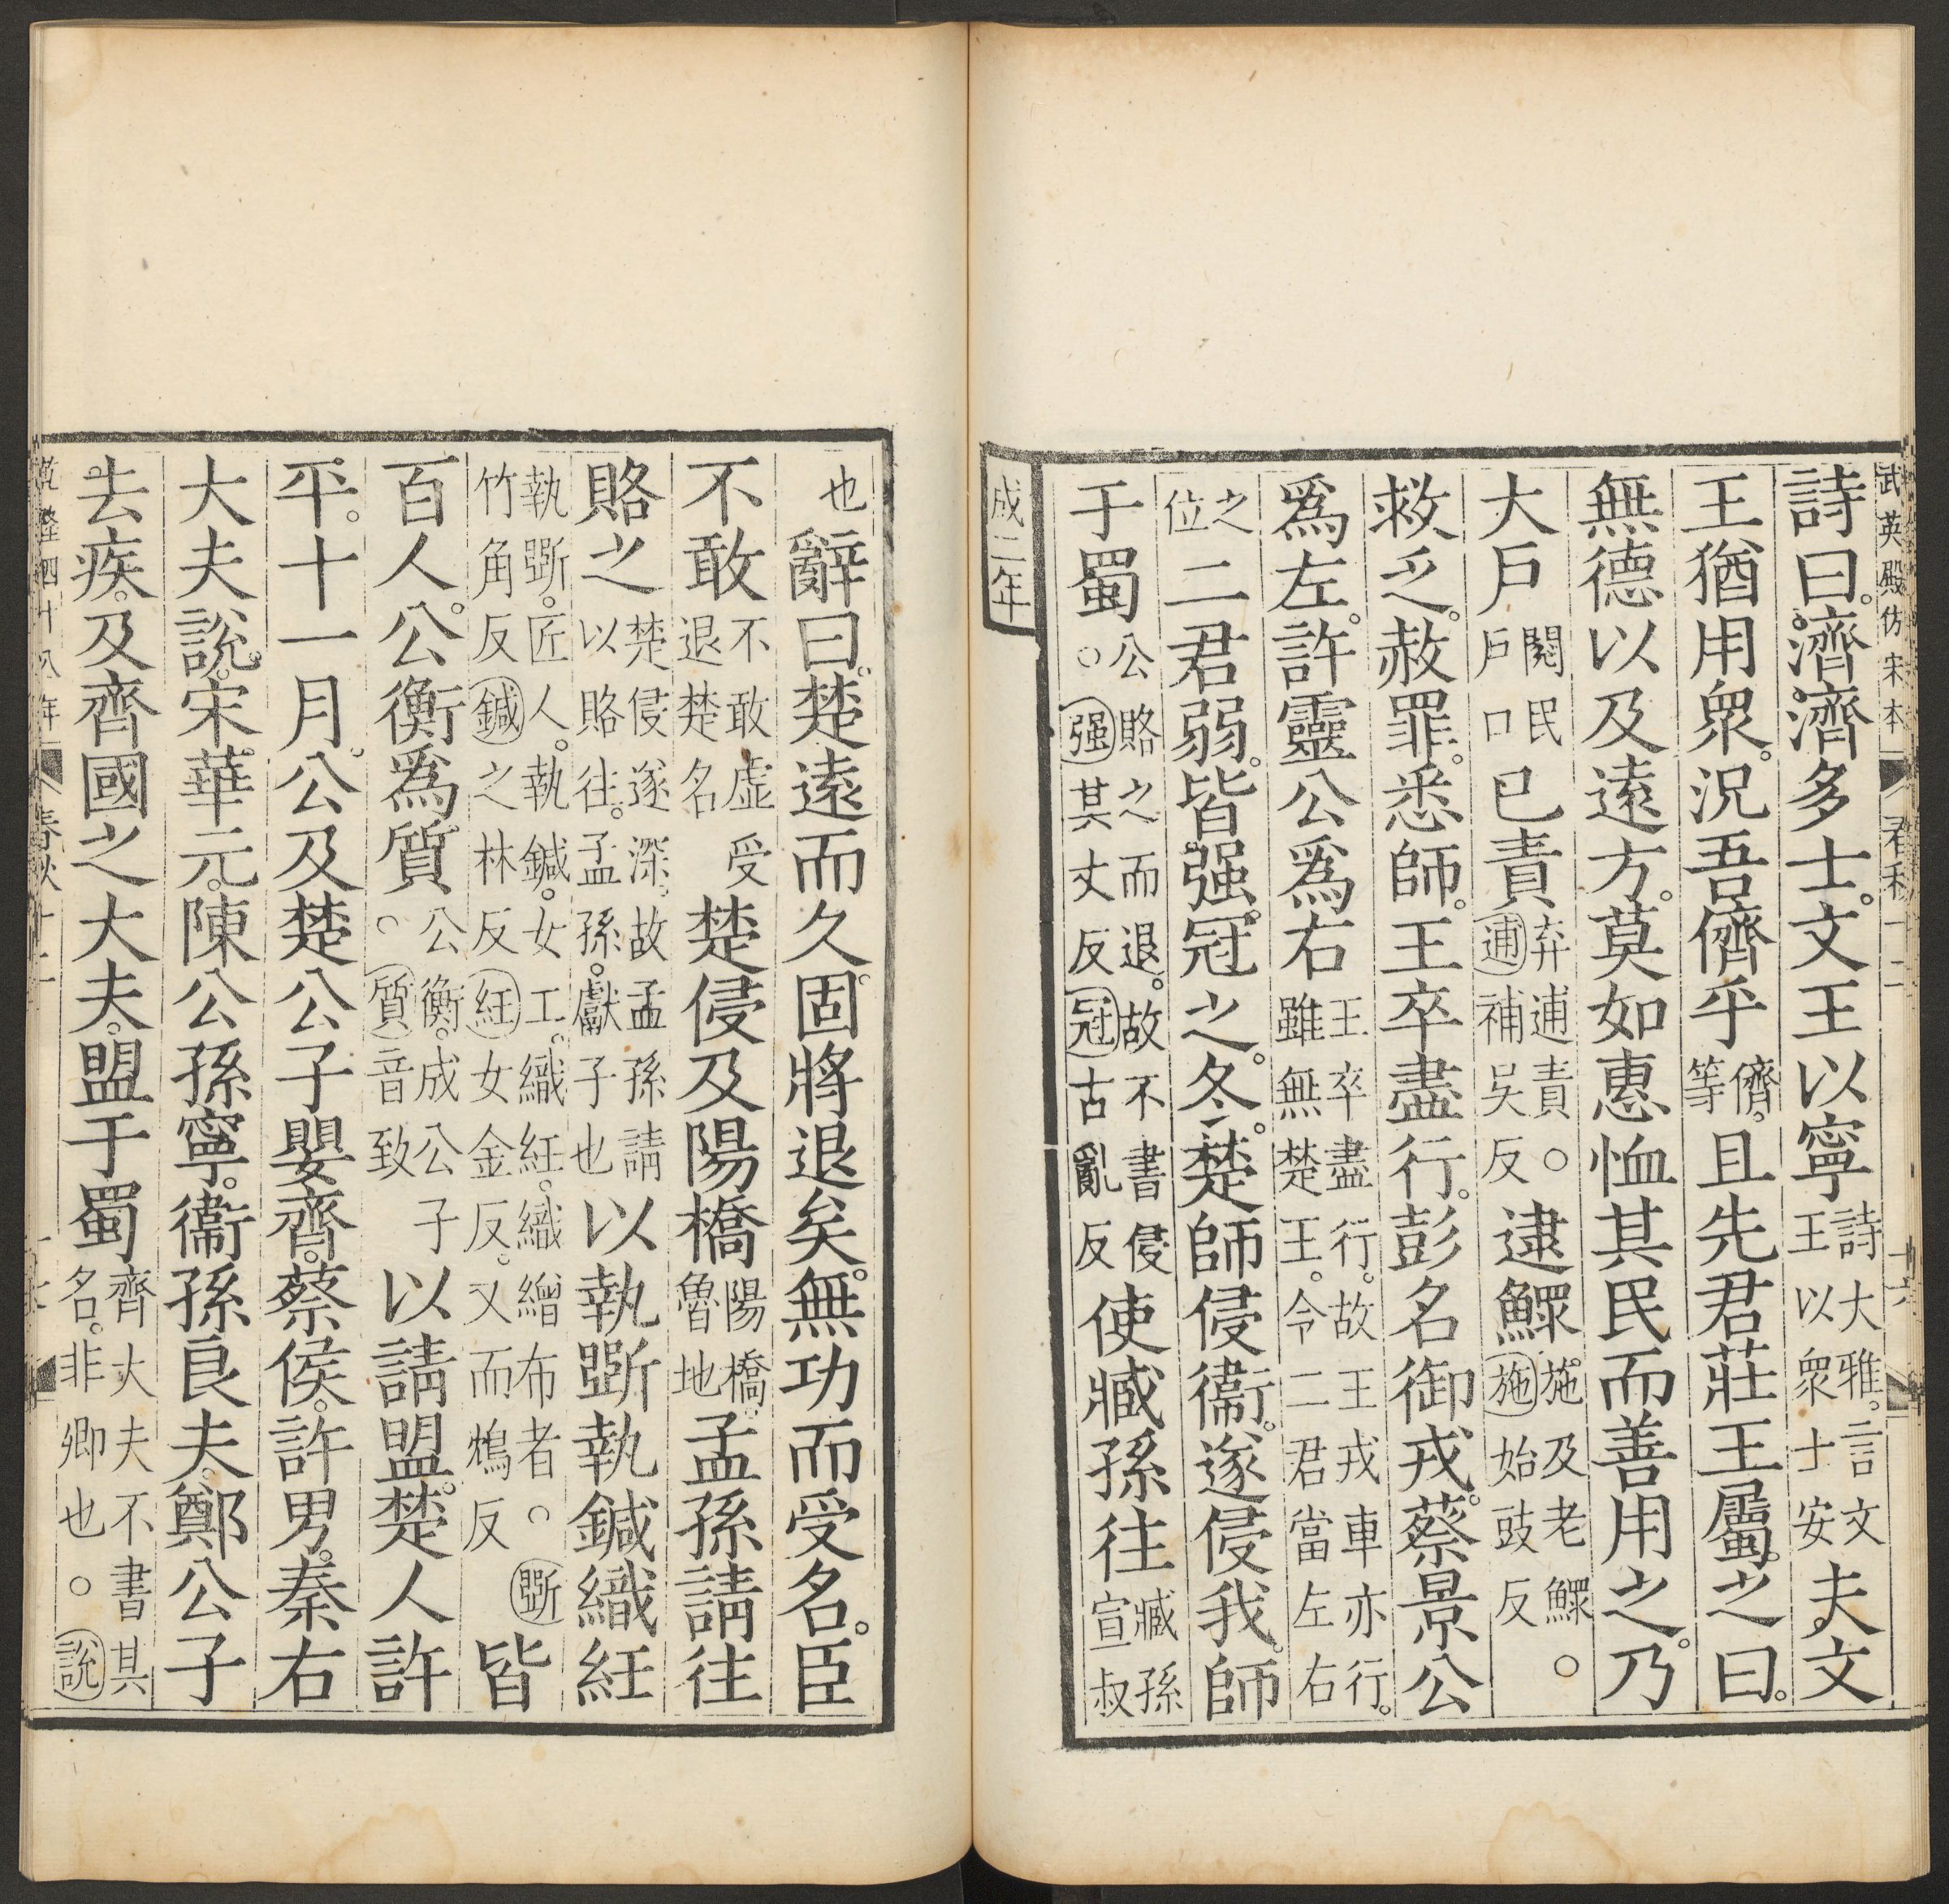 武英殿仿宋本
詩曰濟濟多士文王以寧詩大雅言文王以衆士安夫文
王猶用衆況吾儕乎儕等且先君莊王屬之曰
無德以及遠方莫如惠恤其民而善用之乃
大戶閱民戶口已責弃逋責○逋補吳反逮鰥施及老鰥○施始豉反
救乏赦罪悉師王卒盡行彭名御戎蔡景公
爲左許靈公爲右王卒盡行故王戎車亦行雖無楚王令二君當左右
之位二君弱皆强冠之冬楚師侵衞遂侵我師
于蜀公賂之而退故不書侵○强其丈反冠古亂反使臧孫往臧孫宣叔
成二年
也辭曰楚遠而久固將退矣無功而受名臣
不敢不敢虛受退楚名楚侵及陽橋陽橋魯地孟孫請往
賂之楚侵遂深故孟孫請以賂往孟孫獻子也以執斲執鍼織紝
執斲匠人執鍼女工織紝織繒布者○斲竹角反鍼之林反紝女金反又而鴆反皆
百人公衡爲質公衡成公子○質音致以請盟楚人許
平十一月公及楚公子嬰齊蔡侯許男秦右
大夫說宋華元陳公孫寧衞孫良夫鄭公子
去疾及齊國之大夫盟于蜀齊大夫不書其名非卿也○說
乾隆四十八年
春秋十二